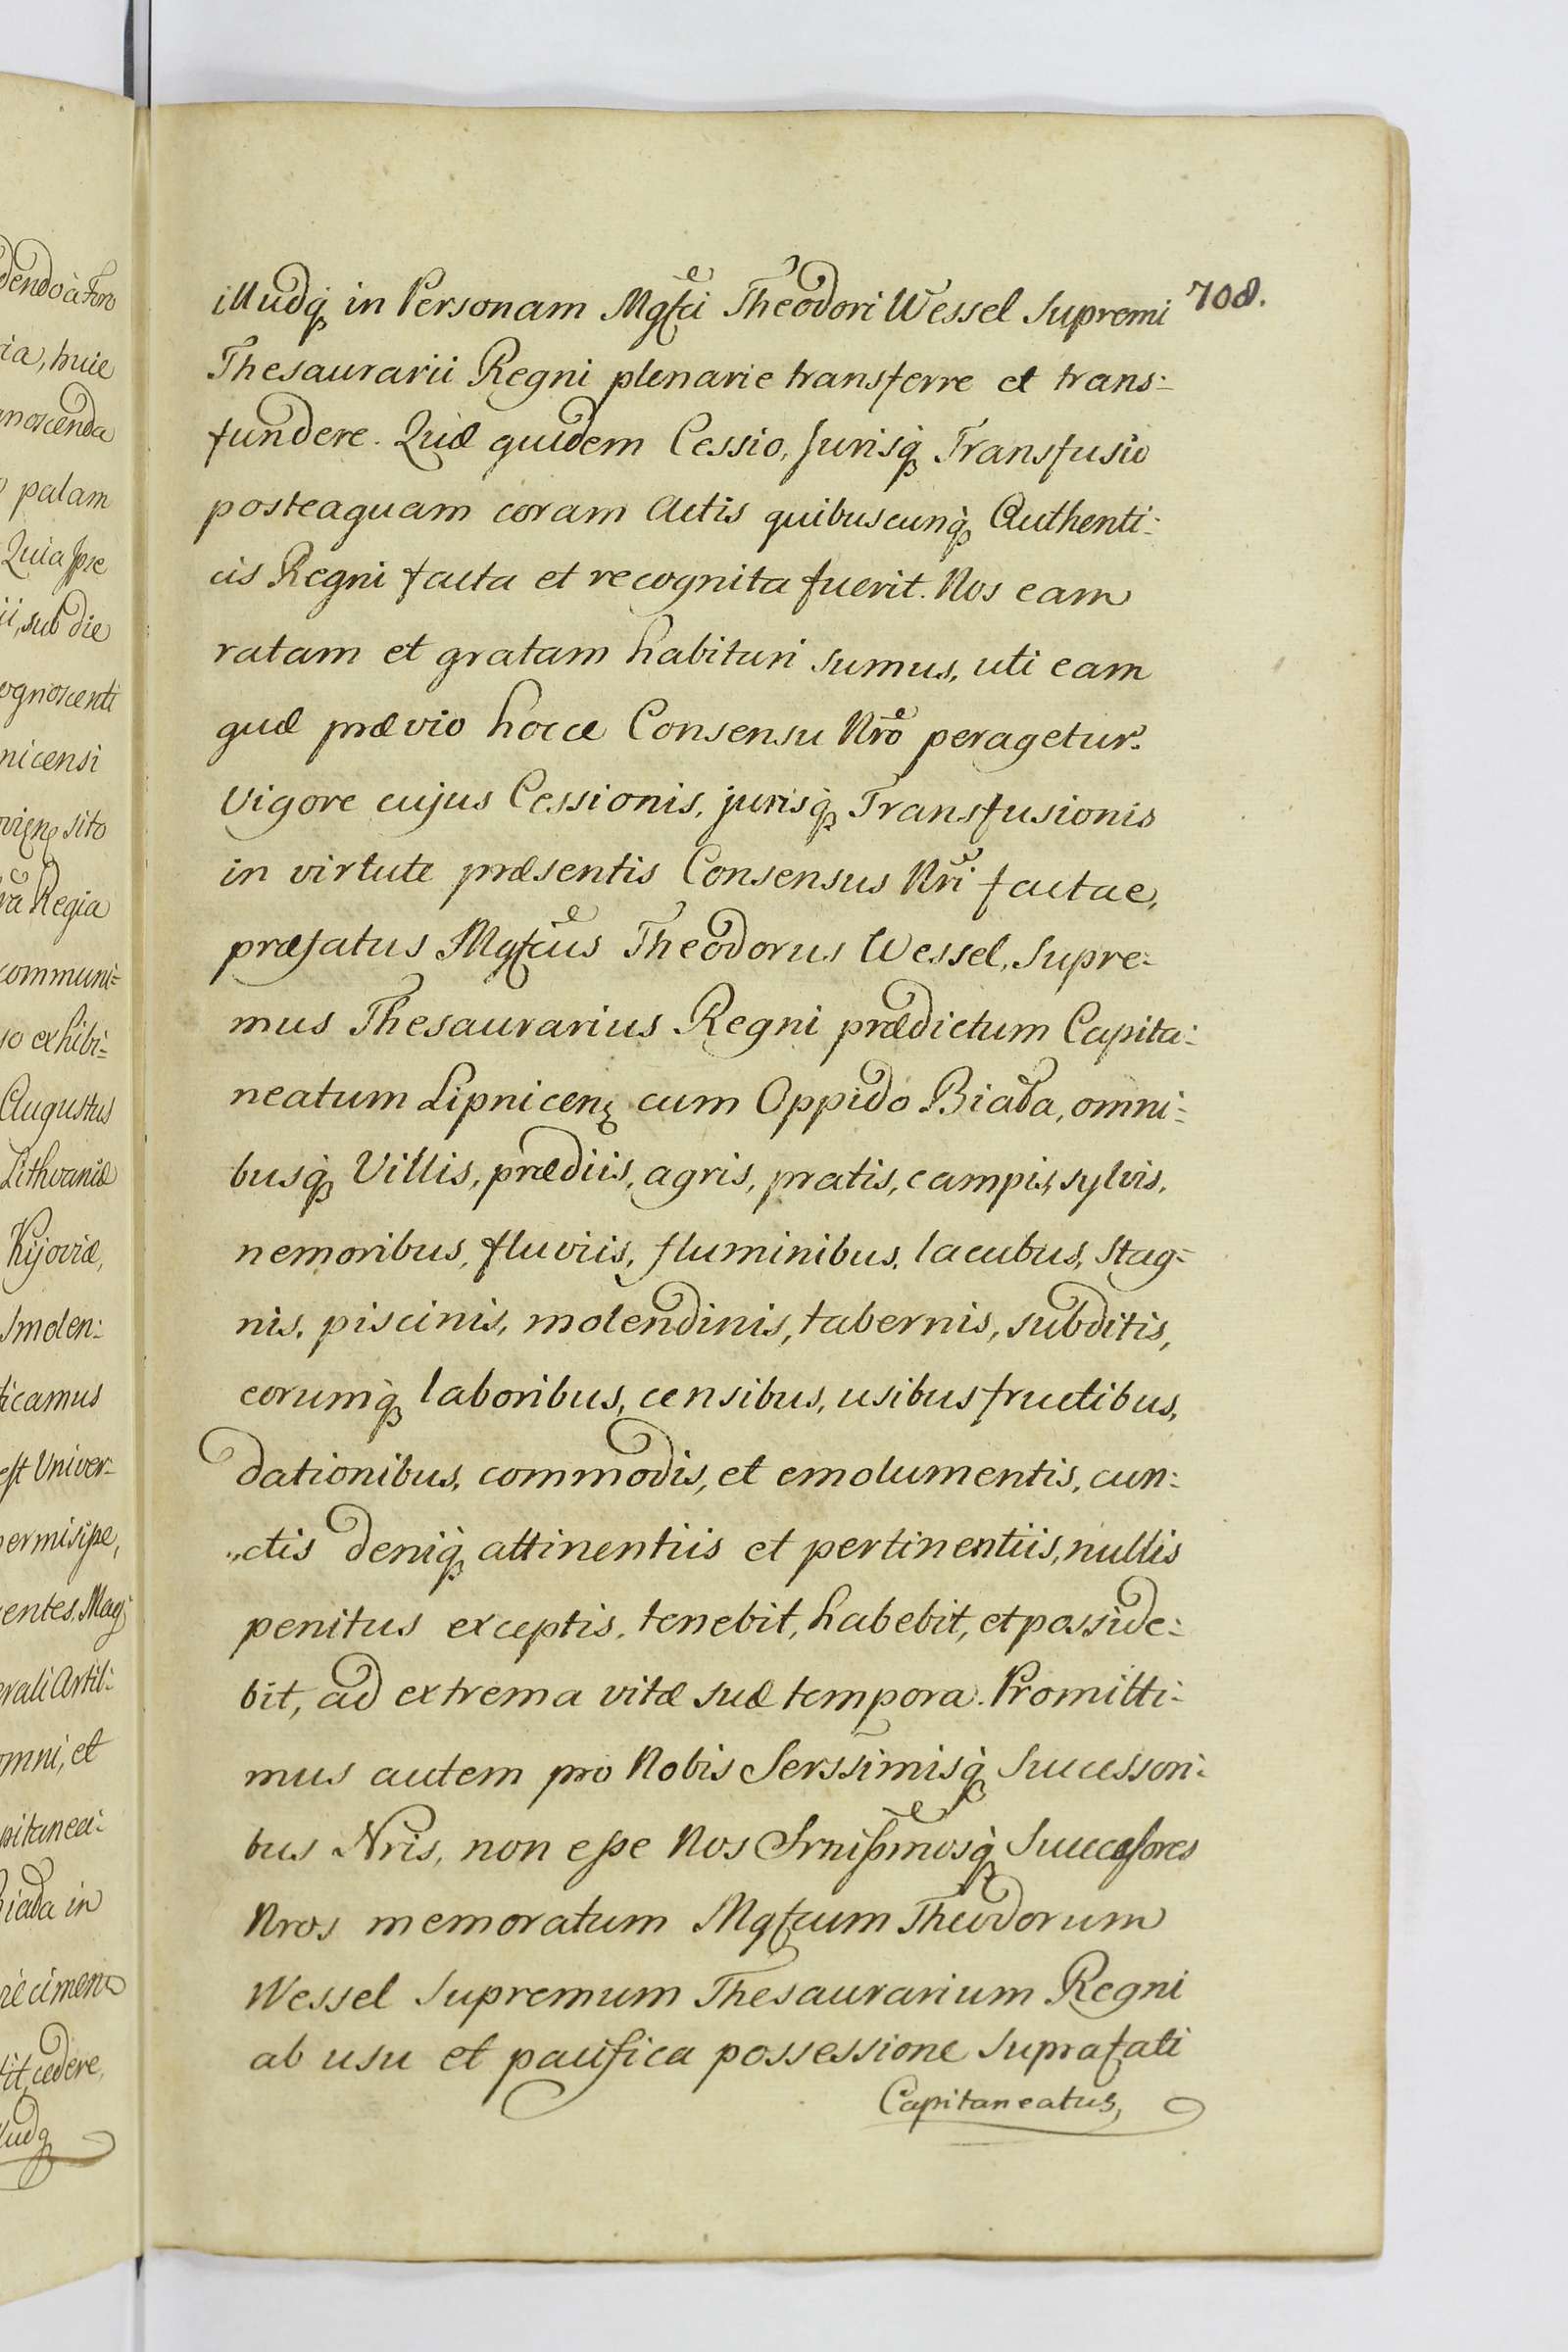 dendo à Foro
ia, huic
noscenda
palam
Quia Ipse
ii, sub die
ognoscenti
nicensi
sito
Regia
communi=
so exhibi=
Augustus
Lithvaniæ
Kijoviæ,
Smolen:
ticamus
est Univer=
permisisse,
entes. Mag
erali Artil:
omni, et
pitanea:
Biała in
recimen
tit, cedere,
ludq
708.
illudq in Personam Mgfci Theodori Wessel Supremi
Thesaurarii Regni plenarie transferre et trans:
fundere. Quæ quidem Cessio, Jurisq Transfusio
posteaquam coram Actis quibuscunq Authenti:
cis Regni facta et recognita fuerit. Nos eam
ratam et gratam habituri sumus, uti eam
quæ prævio hocce Consensu Nro peragetur.
Vigore cujus Cessionis, jurisq Transfusionis
in virtute præsentis Consensus Nri factae,
præfatus Mgfcus Theodorus Wessel, Supre:
mus Thesaurarius Regni prædictum Capita:
neatum Lipnicen cum Oppido Biała, omni:
busq Villis, prædiis, agris, pratis, campis, sylvis,
nemoribus, fluviis, fluminibus, lacubus, stag=
nis, piscinis, molendinis, tabernis, subditis,
eorumq laboribus, censibus, usibus fructibus,
dationibus, commodis, et emolumentis, cun:
„ctis deniq attinentiis et pertinentiis, nullis
penitus exceptis, tenebit, habebit, et posside:
bit, ad extrema vitæ suæ tempora. Promitti:
mus autem pro Nobis Serssimisq Successori:
bus Nris, non esse Nos Srnissimosq Successores
Nros memoratum Mgfcum Theodorum
Wessel Supremum Thesaurarium Regni
ab usu et pacifica possessione suprafati
Capitaneatus,